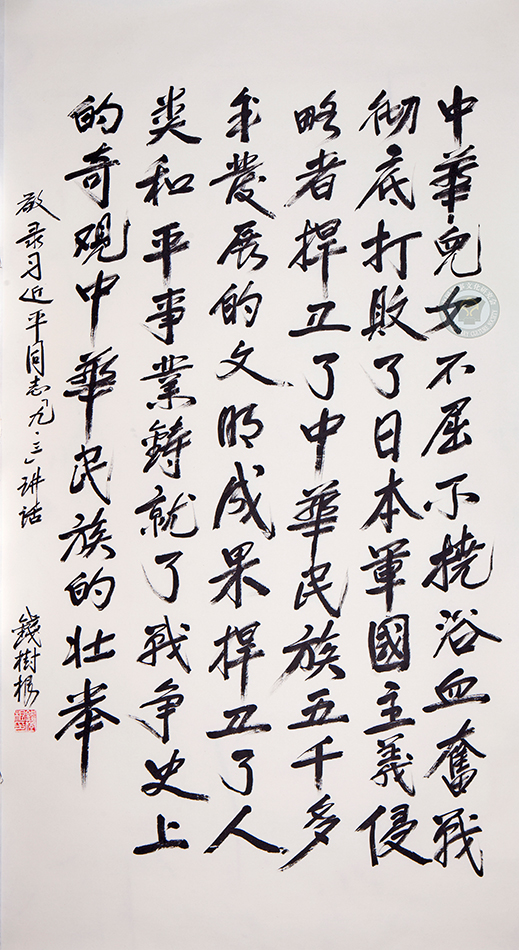 中華兒女不屈不撓浴血奮戰
彻底打敗了日本軍國主義侵
略者捍卫了中華民族五千多
年發展的文明成果捍卫了人
类和平事業鑄就了戰争史上
的奇觀中華民族的壮举
敬录习近平同志「九·三」讲话
錢樹根